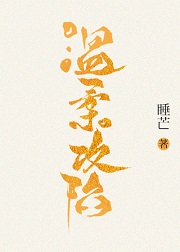 溫柔攻陷
睡芒 著